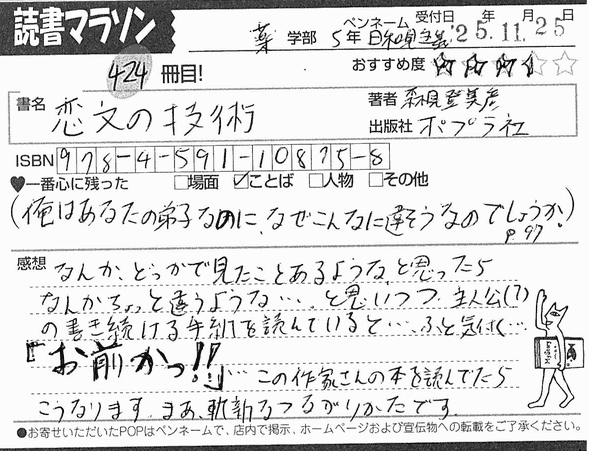 読書マラソン
薬 学部 5年 ペンネーム 受付日 '25年11月25日
424 冊目! おすすめ度 ☆☆☆☆☆
書名 恋文の技術
著者 森見登美彦
出版社 ポプラ社
ISBN 978-4-591-10875-8
♥一番心に残った □場面 ☑ことば □人物 □その他
(俺はあなたの弟子なのに、なぜこんなに違そうなのでしょうか?)
P.97
感想 なんか、どっかで見たことあるような、と思ったら
なんかちょっと違うような…、と思いつつ、主人公(?)
の書き続ける手紙を読んでいると…、ふと気付く…
『お前かっ!!』… この作家さんの本を読んでたら
こうなります。まあ、斬新なつながりかたです。
●お寄せいただいたPOPはペンネームで、店内で掲示、ホームページおよび宣伝物への転載をご了承ください。